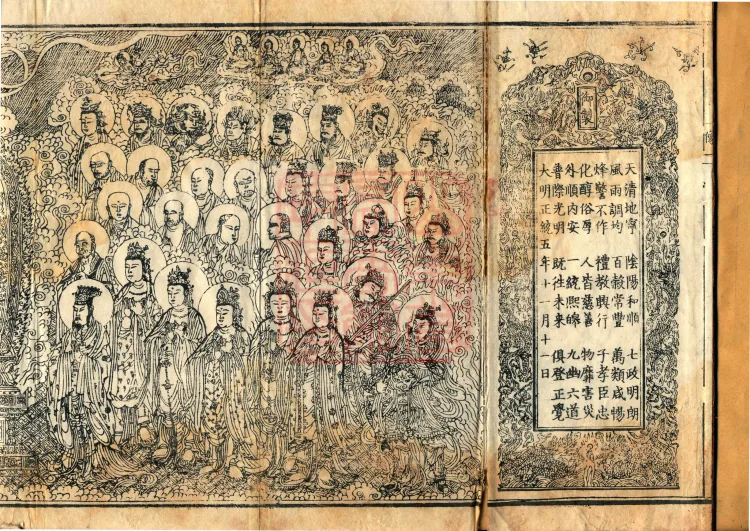 御製
天清地寧 陰陽和順 七政明朗
風雨調均 百穀常豐 萬類咸暢
烽警不作 禮教興行 子孝臣忠
化醇俗厚 人皆慈善 物靡害災
外順内安 一統熙皞 九幽六道
普際光明 既往未來 俱登正覺
大明正統五年十一月十一日